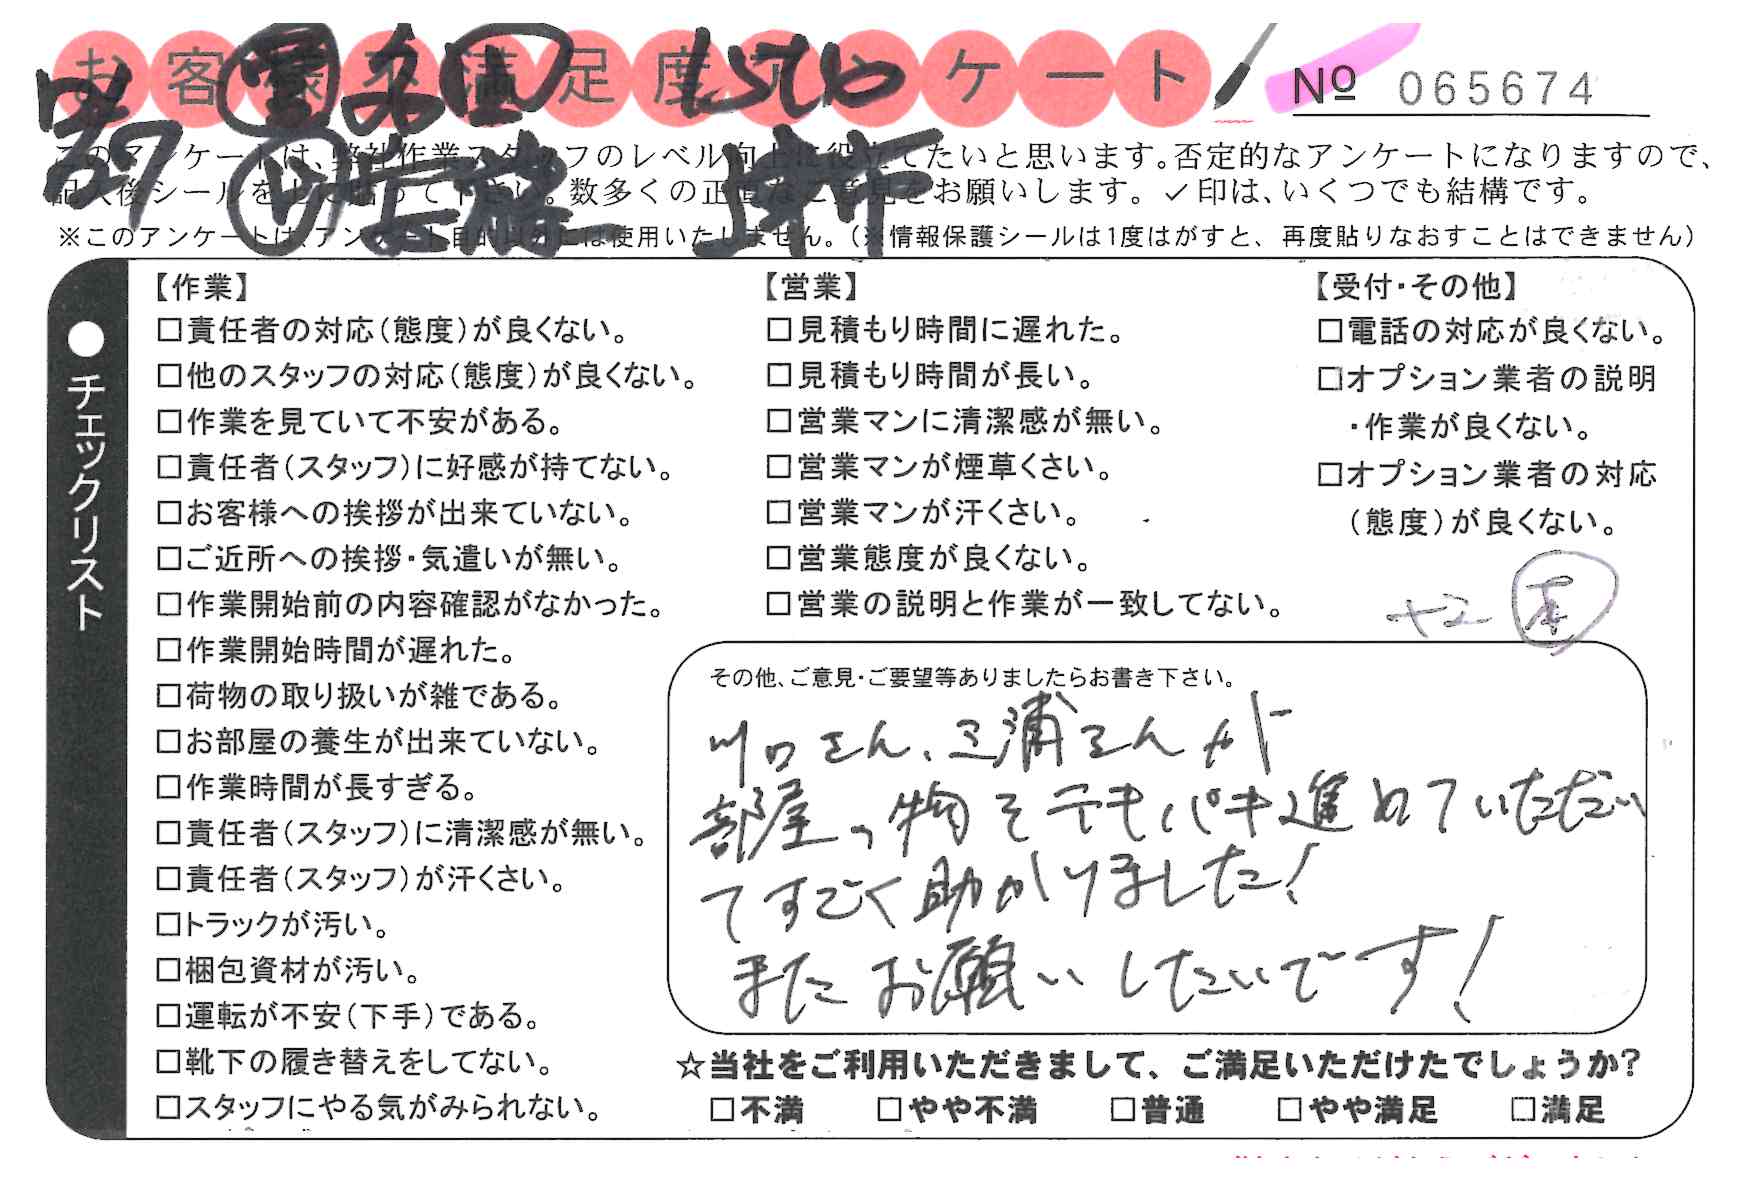 お客様来満足度アンケート
№ 065674
このアンケートは、弊社作業スタッフのレベル向上に役立てたいと思います。否定的なアンケートになりますので、
記入後シールを上に貼って下さい。数多くの正直なご意見をお願いします。✓印は、いくつでも結構です。
※このアンケートは、アンケート目的以外には使用いたしません。（※情報保護シールは1度はがすと、再度貼りなおすことはできません）
●チェックリスト
【作業】
□責任者の対応（態度）が良くない。
□他のスタッフの対応（態度）が良くない。
□作業を見ていて不安がある。
□責任者（スタッフ）に好感が持てない。
□お客様への挨拶が出来ていない。
□ご近所への挨拶・気遣いが無い。
□作業開始前の内容確認がなかった。
□作業開始時間が遅れた。
□荷物の取り扱いが雑である。
□お部屋の養生が出来ていない。
□作業時間が長すぎる。
□責任者（スタッフ）に清潔感が無い。
□責任者（スタッフ）が汗くさい。
□トラックが汚い。
□梱包資材が汚い。
□運転が不安（下手）である。
□靴下の履き替えをしてない。
□スタッフにやる気がみられない。
【営業】
□見積もり時間に遅れた。
□見積もり時間が長い。
□営業マンに清潔感が無い。
□営業マンが煙草くさい。
□営業マンが汗くさい。
□営業態度が良くない。
□営業の説明と作業が一致してない。
【受付・その他】
□電話の対応が良くない。
□オプション業者の説明
・作業が良くない。
□オプション業者の対応
（態度）が良くない。
その他、ご意見・ご要望等ありましたらお書き下さい。
川口さん、三浦さんが
部屋の物をテキパキ進めていただい
てすごく助かりました！
またお願いしたいです！
☆当社をご利用いただきまして、ご満足いただけたでしょうか？
□不満 □やや不満 □普通 □やや満足 □満足